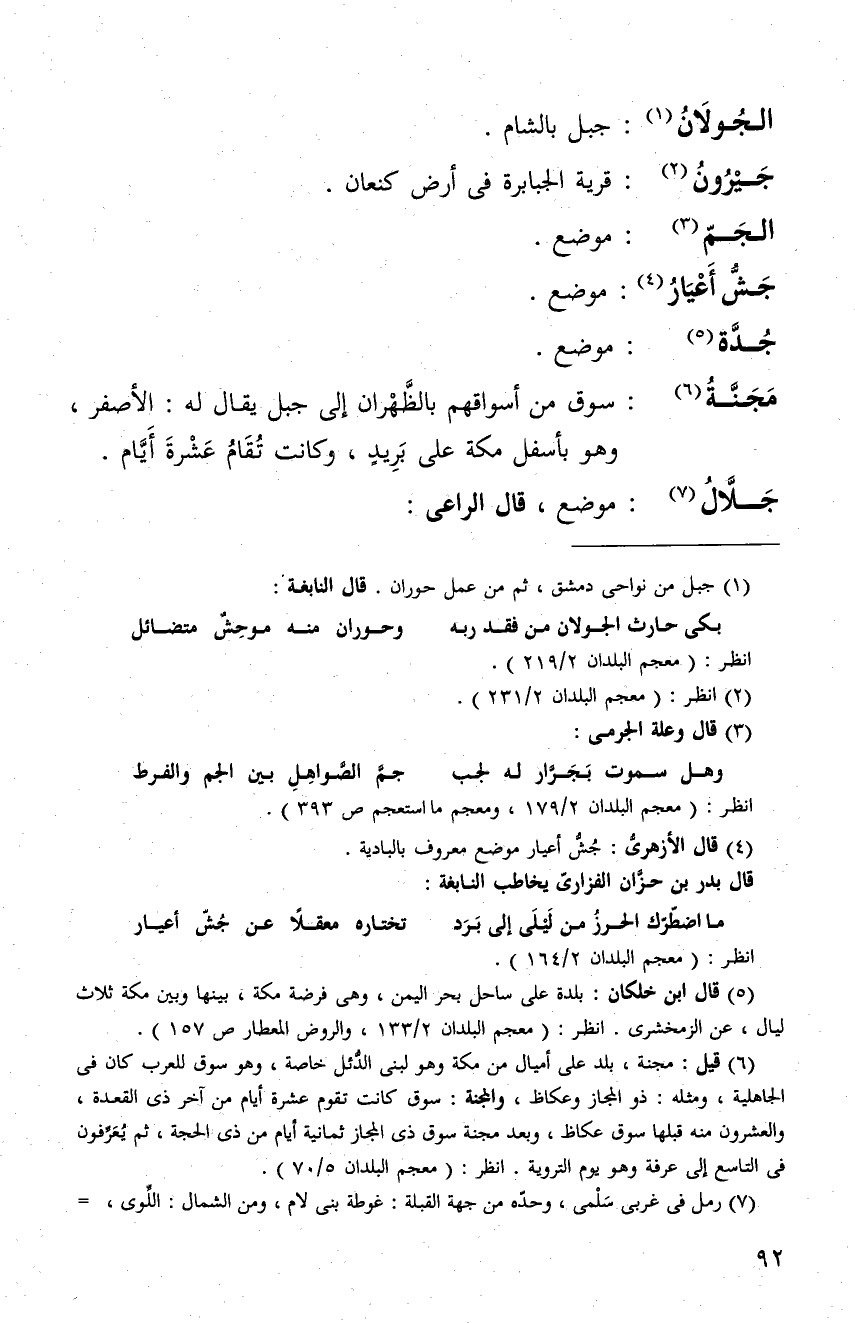 الـجُـولَانُ (١) : جبـل بالشام .
جَــيْرُونُ (٢) : قرية الجبابرة فى أرض كنعان .
الـجَــمّ (٣) : موضـع .
جَـشُّ أَعْيَارُ (٤) : موضـع .
جُــدَّة (٥) : موضـع .
مَجَـنَّــةُ (٦) : سـوق من أسواقهم بالظَّهْران إلى جبـل يقـال لـه : الأصفـر ،
وهـو بأسفـل مكة على بَرِيدٍ ، وكانت تُقَامُ عَشْرةَ أَيَّام .
جَـــلَّالُ (٧) : موضـع ، قال الراعى :
(١) جبـل من نواحى دمشق ، ثم من عمل حوران . قال النابغـة :
بـكى حـارث الجـولان مـن فقـد ربـه وحــوران منــه مـوحِشٌ متضــائل
انظـر : ( معجم البلدان ٢١٩/٢ ) .
(٢) انظـر : ( معجم البلدان ٢٣١/٢ ) .
(٣) قال وعلة الجرمـى :
وهــل سـمـوت بَـجَــرَّار لـه لجـب جـمَّ الصَّـواهِـلِ بـين الجم والفـرط
انظـر : ( معجم البلدان ١٧٩/٢ ، ومعجم ما استعجم ص ٣٩٣ ) .
(٤) قال الأزهرىُّ : جُشُّ أعيار موضـع معروف بالبادية .
قال بدر بن حـزَّان الفزارىّ يخاطب النـابغة :
مـا اضطّرّك الحـرزُ مـن لَيْلَى إلى بَـرَد تختـاره معقــلًا عـن جُشّ أعيــار
انظـر : ( معجم البلدان ١٦٤/٢ ) .
(٥) قال ابن خلكان : بلدة على ساحل بحر اليمن ، وهى فرضة مكة ، بينها وبين مكة ثلاث
ليال ، عن الزمخشرى . انظر : ( معجم البلدان ١٣٣/٢ ، والروض المعطار ص ١٥٧ ) .
(٦) قيل : مجنة ، بلد على أميال من مكة وهو لبنى الدُّئل خاصة ، وهو سوق للعرب كان فى
الجاهلية ، ومثله : ذو المجاز وعكاظ ، والمجنة : سوق كانت تقوم عشرة أيام من آخر ذى القعدة ،
والعشرون منه قبلها سوق عكاظ ، وبعد مجنة سوق ذى المجاز ثمانية أيام من ذى الحجة ، ثم يُعَرِّفون
فى التاسع إلى عرفة وهو يوم التروية . انظر : ( معجم البلدان ٧٠/٥ ) .
(٧) رمـل فى غربى سَلْمى ، وحدّه من جهة القبلة : غوطة بنى لام ، ومن الشمال : اللِّوى ، =
٩٢